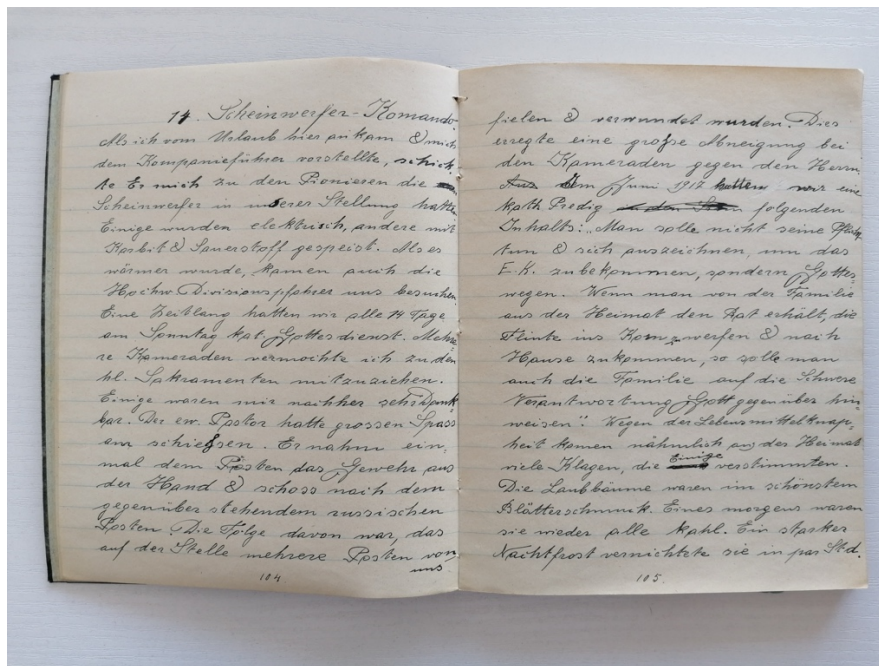 14. Scheinwerfer-Komando.
Als ich vom Urlaub hier ankam & mich
dem Kompanieführer vorstellte, schick-
te Er mich zu den Pionieren die
Scheinwerfer in unserer Stellung hatten
Einige wurden elektrisch, andere mit
Karbit & Sauerstoff gespeist. Als es
wärmer wurde, kamen auch die
Hochw. Divisionspfahrer uns besuchen
Eine Zeitlang hatten wir alle 14 Tage
am Sonntag kat. Gottesdienst. Mehre-
re Kameraden vermochte ich zu den
hl. Sakramenten mitzuziehen.
Einige waren mir nachher sehr Dank-
bar. Der ev. Pastor hatte grossen Spass
am schießen. Er nahm ein-
mal dem Posten das Gewehr aus
der Hand & schoss nach dem
gegenüber stehendem russischen
Posten. Die Folge davon war, das
auf der Stelle mehrere Posten von
uns
104
fielen & verwundet wurden. Dies
erregte eine große Abneigung bei
den Kameraden gegen den Herrn
Im Juni 1917 hatten wir eine
kath. Predig folgenden
Inhalts: „Man solle nicht seine Pflicht
tun & sich auszeichnen, um das
E.K. zubekommen, sondern Gottes-
wegen. Wenn man von der Familie
aus der Heimat den Rat erhält, die
Flinte ins Korn werfen & nach
Hause zukommen, so solle man
auch die Familie auf die Schwere
Verantwortung Gott gegenüber hin-
weisen". Wegen der Lebensmittelknap-
heit kamen nähmlich aus der Heimat
viele Klagen, die Einige verstimmten.
Die Laubbäume waren im schönstem
Blätterschmuk. Eines morgens waren
sie wieder alle kahl. Ein starker
Nachtfrost vernichtete sie in par Std.
105.